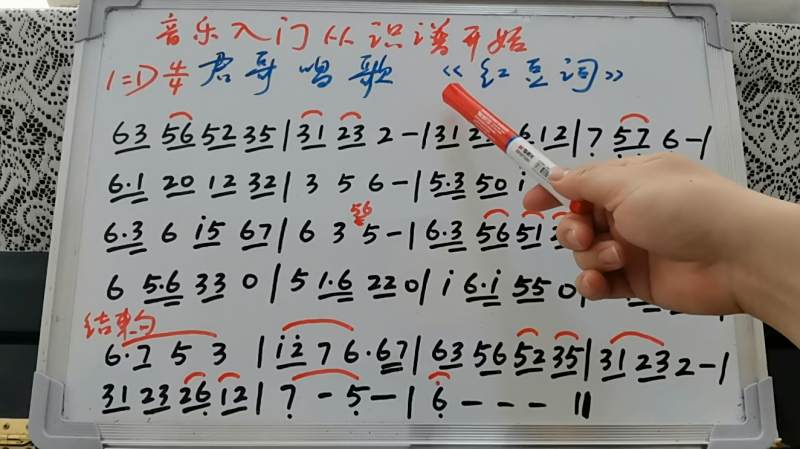 音乐入门从识谱开始
1=D 4/4 君哥唱歌 《红豆词》
63 56 52 35 | 31 23 2 - | 31 2 6 12 | 7 57 6 - |
6·1 20 12 32 | 3 5 6 - | 5·3 50 i
56
6·3 6 i5 67 | 6 3 5 - | 6·3 56 51
6 5·6 33 0 | 5 1·6 22 0 | i 6·i 55 0 |
结束句
6·i 5 3 | i2 7 6·67 | 63 56 52 35 | 31 23 2 - |
31 23 26 12 | 7 - 5 - | 6 - - - ||